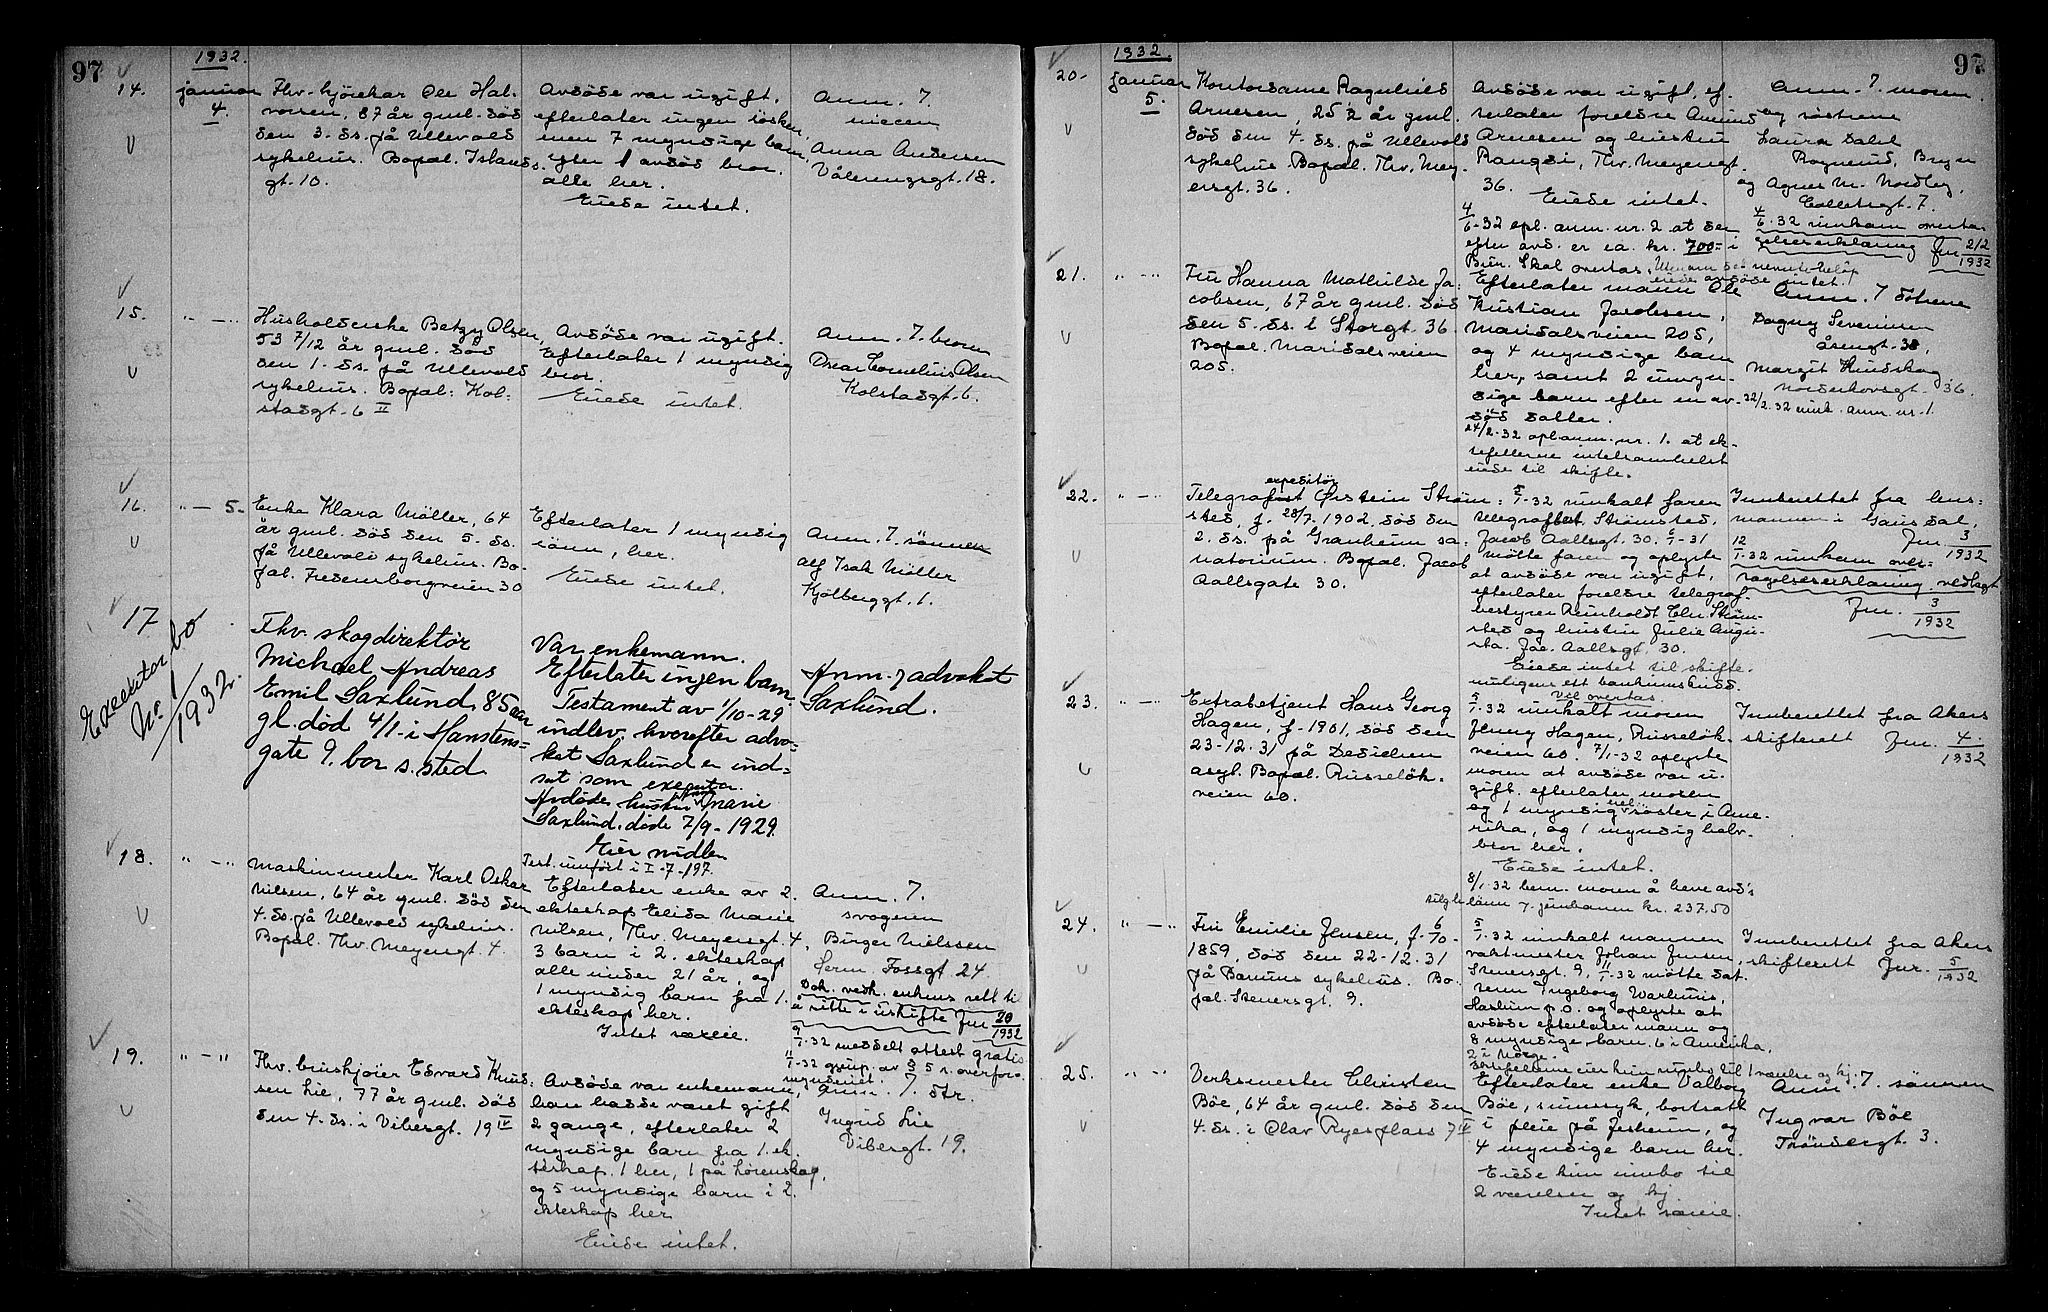 97
1932.
14.
januar
4.
Fhv. kjörekar Ole Hal-
vorsen, 87 år gml. död
den 3. ds. på Ullevold
sykehus. Bopæl. Islands
gt. 10.
Avdöde var ugift,
efterlater ingen sösken
men 7 myndige barn
efter 1 avdöd bror.
alle her.
Eiede intet.
Anm. 7.
niecen
Anna Andersen
Vålerengsgt. 18.
15.
" — "
Husholderske Betzy Olsen,
53 7/12 år gml. död
den 1. ds. på Ullevold
sykehus. Bopæl: Kol-
stadgt. 6 II
Avdöde var ugift.
Efterlater 1 myndig
bror.
Eiede intet.
Anm. 7. broren
Oscar Cornelius Olsen
Kolstadgt. 6.
16.
" — 5.
Enke Klara Möller, 64
år gml. död den 5. ds.
på Ullevold sykehus. Bo-
pæl. Fredensborgveien 30
Efterlater 1 myndig
sönn, her.
Eiede intet.
Anm. 7. sönnen
Alf Isak Möller
Kjölberggt. 1.
17
Executorbo
No. 1/1932.
Fhv. skogdirektör
Michael Andreas
Emil Saxlund, 85 aar
gl. död 4/1 i Hanstens=
gate 9, bor s. sted
Var enkemann.
Efterlater ingen barn.
Testament av 1/10-29
indlev. hvorefter advo-
kat Saxlund er ind=
sat som executor.
Avdödes hustru Marie
Saxlund, döde 7/9-1929.
Eier midler
Test. innfört i I-7-197.
Anm. 7 advokat
Saxlund.
18.
" — "
Maskinmester Karl Oskar
Nilsen, 64 år gml. död den
4. ds. på Ullevold sykehus.
Bopæl. Thv. Meyersgt. 4.
Efterlater enke av 2.
ekteskap Elida Marie
Nilsen, Thv. Meyersgt. 4,
3 barn i 2. ekteskap
alle under 21 år, og
1 myndig barn fra 1.
ekteskap her.
Intet særeie.
Anm. 7.
svogeren
Birger Nielssen
Herm. Fossgt 24.
Dok. vedk. enkens rett til
å sitte i uskifte Jnr 20/1932
9/1-32 meddelt attest gratis
19.
" — "
Fhv. bruskjöier Edvard Knud-
sen Lie, 77 år gml. död
den 4. ds. i Vibesgt. 19 IV
Avdöde var enkemann,
han hadde været gift
2 gange, efterlater 2
myndige barn fra 1. ek-
teskap. 1 her, 1 på Lörenskog,
og 5 myndige barn i 2.
ekteskap her
Eiede intet.
Anm. 7. dtr.
Ingrid Lie
Vibesgt. 19.
1932.
97
20.
januar
5.
Kontordame Ragnhild
Arnesen, 25 1/2 år gml.
död den 4. ds. på Ullevold
sykehus. Bopæl. Thv. Mey-
ersgt. 36.
Avdöde var ugift, ef-
terlater foreldre Amund
Arnesen og hustru
Rangdi, Thv. Meyersgt.
36.
Eiede intet.
4/6-32 opl. anm. nr. 2 at der
efter avd. er ca. kr. 700= i
Bur. Skal overtas. Utenom det nevnte beløp
eiede avdöde intet.
Anm. 7. moren
og söstrene
Laura Dahl
Rognerud, Bryn
og Agnes M. Nordby,
Colletsgt. 7.
4/6-32 innkom overta-
gelseserklæring Jnr 212/1932
21.
" — "
Fru Hanna Mathilde Ja-
cobsen, 67 år gml. död
den 5. ds. i Storgt. 36.
Bopæl. Maridalsveien
205.
Efterlater mann Ole
Kristian Jacobsen,
Maridalsveien 205,
og 4 myndige barn
her, samt 2 umyn-
dige barn efter en av-
död datter.
24/2-32 opl. anm. nr. 1. at ek-
tefellene intetsomhelst
eiede til skifte.
Anm. 7 dötrene
Dagny Severinsen
Åsengt. 38,
Margit Hundskog
Norderhovsgt. 36.
22/2.32 innk. anm. nr. 1.
22.
" — "
Telegrafist expeditör Örstein Ström-
sted, f. 28/7. 1902, död den
2. ds. på Granheim sa-
natorium. Bopæl. Jacob
Aallsgate 30.
5/1-32 innkalt faren
telegrafbest. Strömsted,
Jacob Aallsgt. 30. 7/1-31
mötte faren og oplyste
at avdöde var ugift,
efterlater foreldre telegraf-
bestyrer Reinholdt Chr. Ström-
sted og hustru Julie Augu-
sta. Jac. Aallsgt. 30.
Eiede intet til skifte.
muligens ett bankinnskudd.
Vil overtas
Innberettet fra lens-
mannen i Gausdal,
Jnr. 3/1932
12/1-32 innkom over-
tagelseserklæring vedlagt
Jnr. 3/1932
23.
" — "
Extrabetjent Hans Georg
Hagen, f. 1901, död den
23-12-31 på Dedichen
asyl. Bopæl. Russelök-
veien 60.
5/1-32 innkalt moren
Jenny Hagen, Russelök-
veien 60. 7/1-32 oplyste
moren at avdöde var u-
gift. efterlater moren
og 1 myndig söster i Ame-
rika, og 1 myndig halv-
bror her.
Eiede intet.
8/1-32 bem. moren å heve avd's
lönn 7. jernbanen kr. 237.50
Innberettet fra Akers
skifterett Jnr. 4/1932
24.
" — "
Fru Emilie Jensen, f. 6/10-
1859, död den 22-12-31
på Bærums sykehus. Bo-
pæl. Stenersgt. 9.
5/1-32 innkalt mannen
vaktmester Johan Jensen,
Stenersgt. 9, 11/1-32 mötte dat-
teren Ingeborg Warhuus,
Haslum p.o. og oplyste at
avdöde efterlater mann og
8 myndige barn. 6 i Amerika,
2 i Norge.
Ektefellene eier kun innbo til 1 værelse og kj.
Innberettet fra Akers
skifterett Jnr. 5/1932
25.
" — "
Verksmester Christen
Böe, 64 år gml. död den
4. ds. i Olav Ryesplass 7 II
Efterlater enke Valborg
Böe, sinnssyk, bortsatt
i pleie på Jessheim, og
4 myndige barn her.
Eiede kun innbo til
2 værelser og kj.
Intet særeie.
Anm. 7. sönnen
Ingvar Böe
Tröndergt. 3.